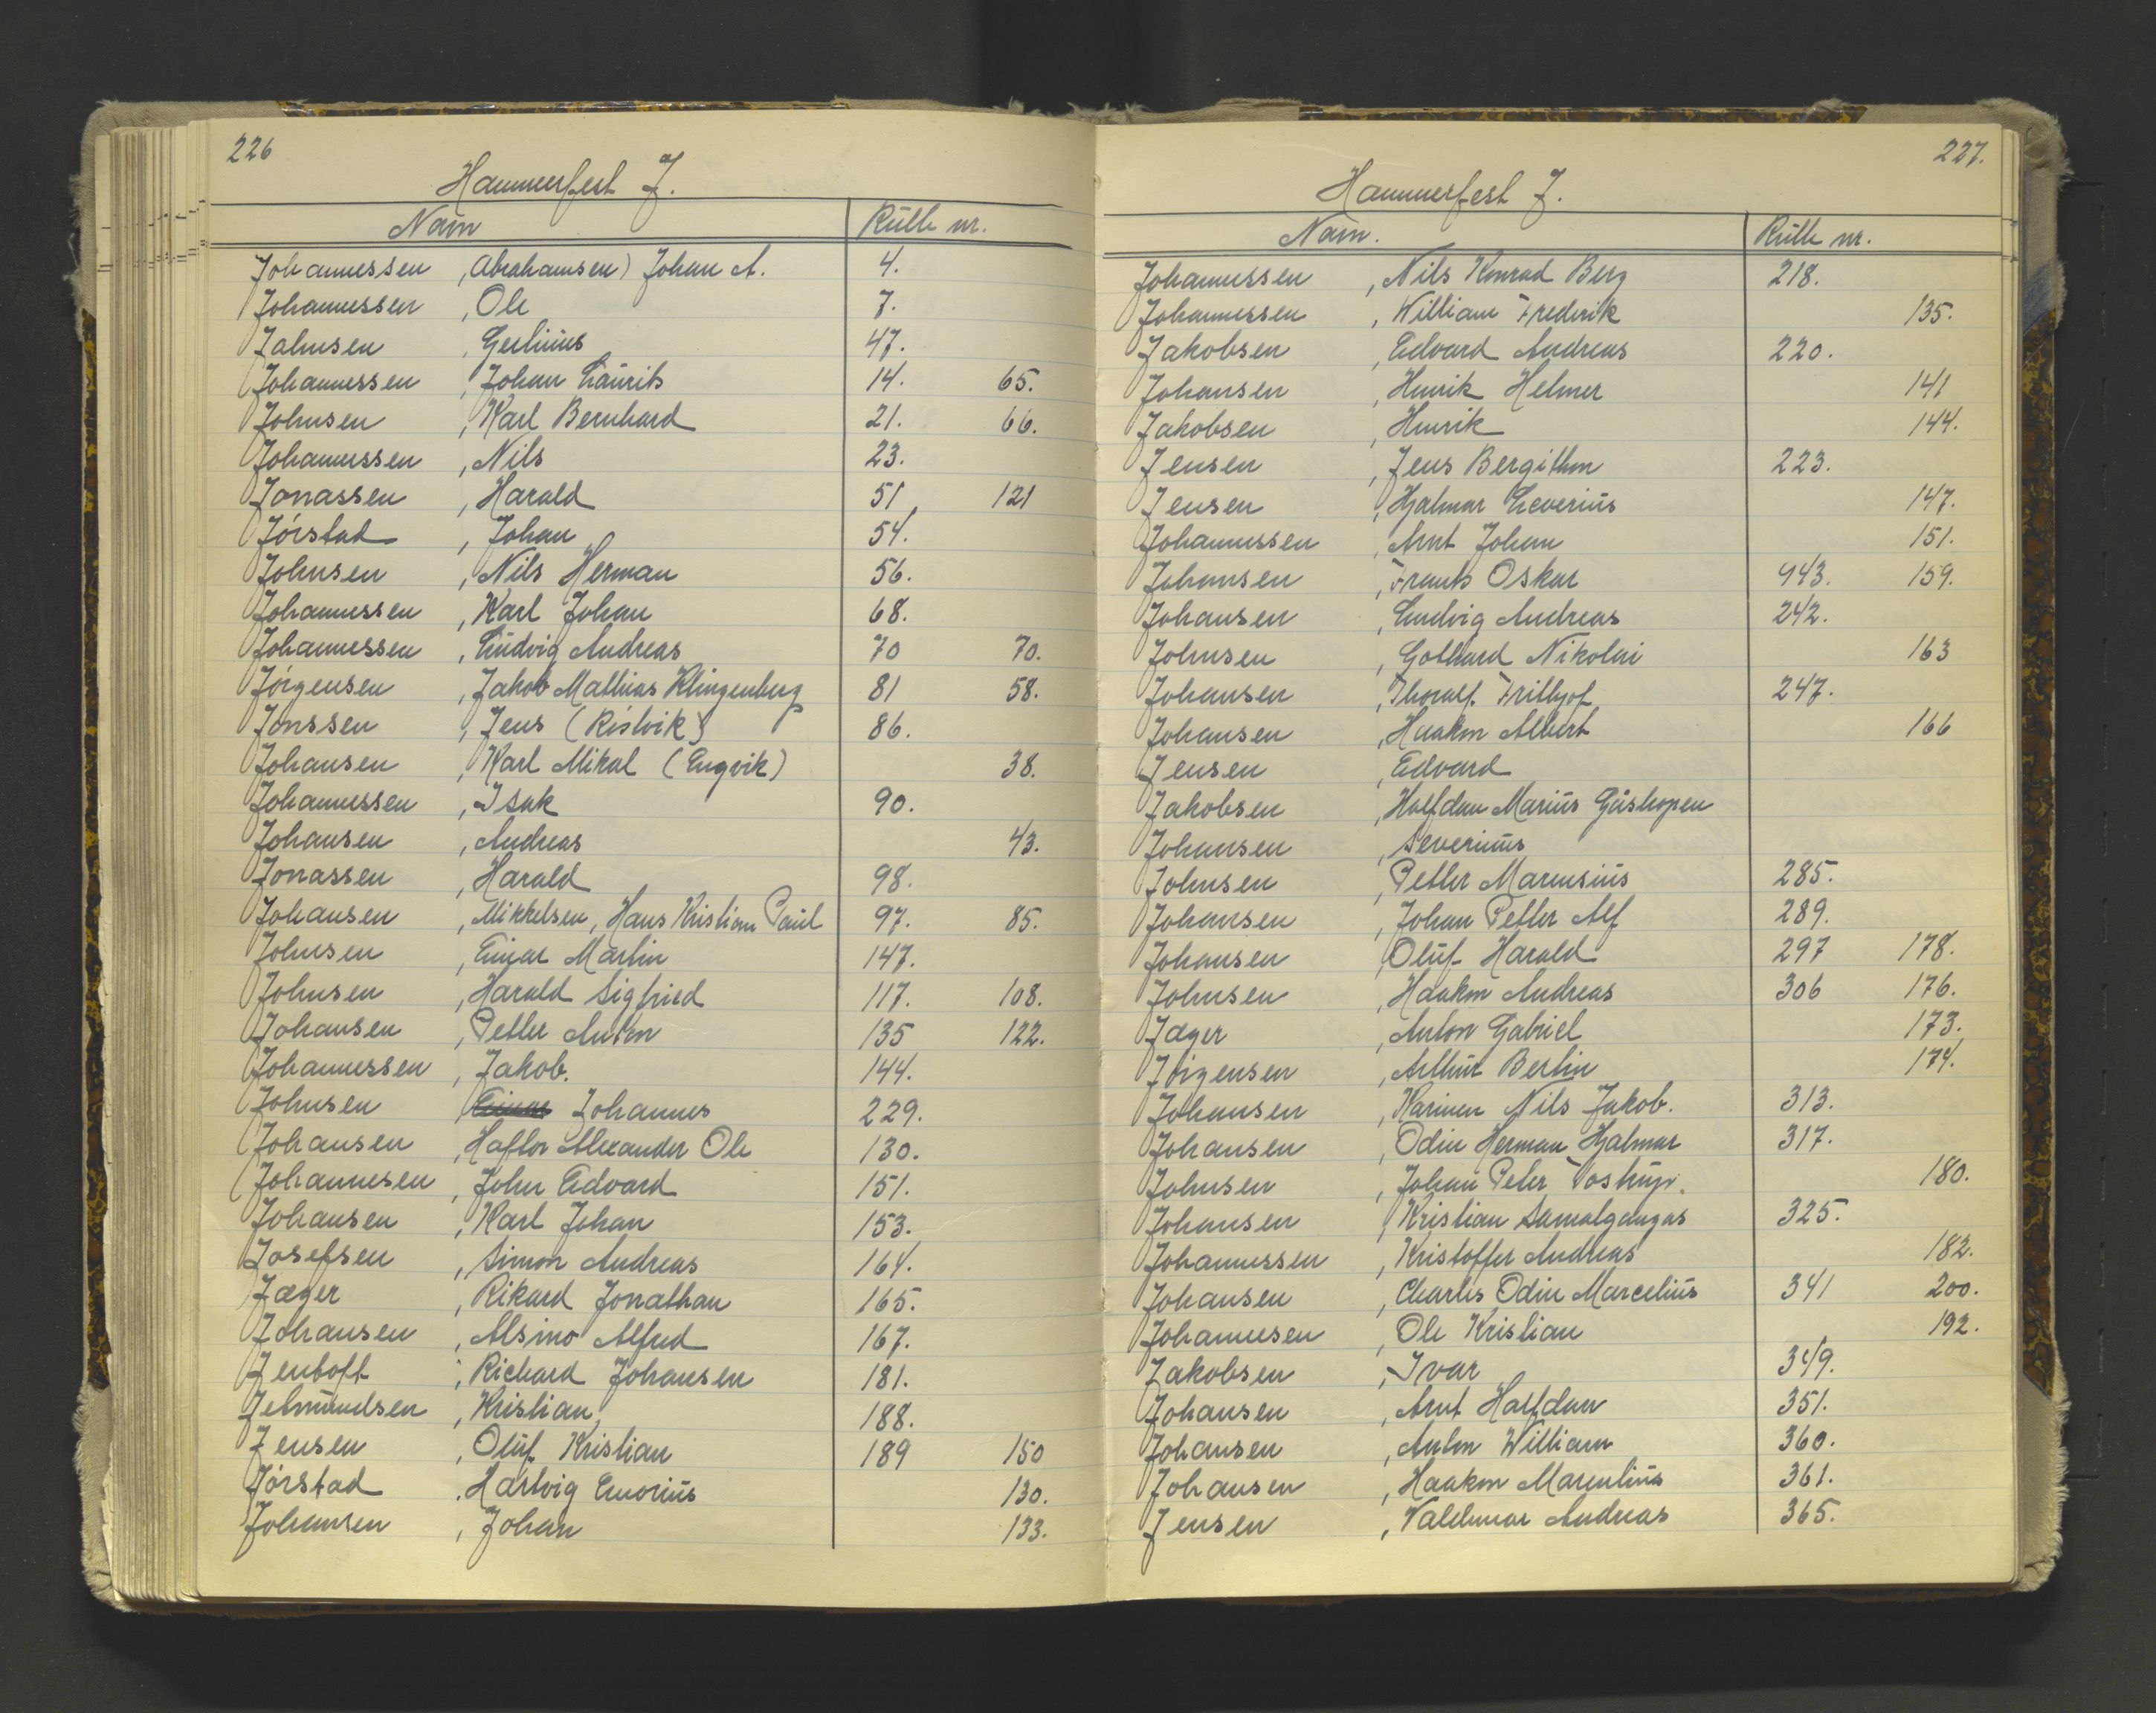 226
Hammerfest J.
Navn Rulle nr.
Johannessen , Abrahamsen) Johan A. 4.
Johannessen , Ole 7.
Jahnsen , 47.
Johannessen , Johan Laurits 14. 65.
Johnsen , Karl Bernhard 21. 66.
Johannessen , Nils 23.
Jonassen , Harald 51 121
Jórstad , Johan 54.
Johnsen , Nils Herman 56.
Johannessen , Karl Johan 68.
Johannessen , Ludvig Andreas 70 70.
Jórgensen , Jakob Mathias Klingenberg 81 58.
Jonssen , Jens (Risvik) 86.
Johansen , Karl Mikal (Engvik) 38.
Johannessen , Isak 90.
Johansen , Andreas 43.
Jonassen , Harald 98.
Johansen , Mikkelsen, Hans Kristian Paul 97. 85.
Johnsen , Einar Martin 147.
Johnsen , Harald Sigfried 117. 108.
Johansen , Petter Anton 135 122.
Johannessen , Jakob. 144.
Johnsen Einar Johannes 229.
Johansen , Haftor Alexander Ole 130.
Johannesen , John Edvard 151.
Johansen , Karl Johan 153.
Josefsen , Simon Andreas 164.
Jæger , Rikard Jonathan 165.
Johansen , Alsino Alfred 167.
Jentoft , Richard Johansen 181.
Jetmundsen , Kristian, 188.
Jensen , Oluf Kristian 189 150
Jórstad , Hartvig Enorius 130.
Johansen , Johan 133.
227.
Hammerfest J.
Navn. Rulle nr.
Johannessen , Nils Konrad Berg 218.
Johannessen , William Frederik 135.
Jakobsen , Edvard Andreas 220.
Johansen , Henrik Helmer 141
Jakobsen , Henrik 144.
Jensen , Jens Bergithon 223.
Jensen , Hjalmar Severius 147.
Johannessen , Arnt Johan 151.
Johansen , Frants Oskar 943. 159.
Johansen , Ludvig Andreas 242.
Johnsen , Gothard Nikolai 163
Johansen , Thoralf Frithjof 247.
Johansen , Haakon Albert 166
Jensen , Edvard
Jakobsen , Halfdan Marius Gåshopen
Johansen , Severinus
Johnsen , Petter Marensius 285.
Johansen , Johan Petter Alf 289.
Johansen , Oluf Harald 297 178.
Johnsen , Haakon Andreas 306 176.
Jæger , Anton Gabriel 173.
Jórgensen , Arthur Bertin 174.
Johansen , Karinen Nils Jakob. 313.
Johansen , Odin Herman Hjalmar 317.
Johnsen , Johan Peter 180.
Johansen , Kristian Samalgangas 325.
Johannessen , Kristoffer Andreas 182.
Johansen , Charles Odin Marcelius 341 200.
Johannesen , Ole Kristian 192.
Jakobsen , Ivar 349.
Johansen , Arnt Halfdan 351.
Johansen , Anton William 360.
Johansen , Haakon Marentius 361.
Jensen , Valdemar Andreas 365.